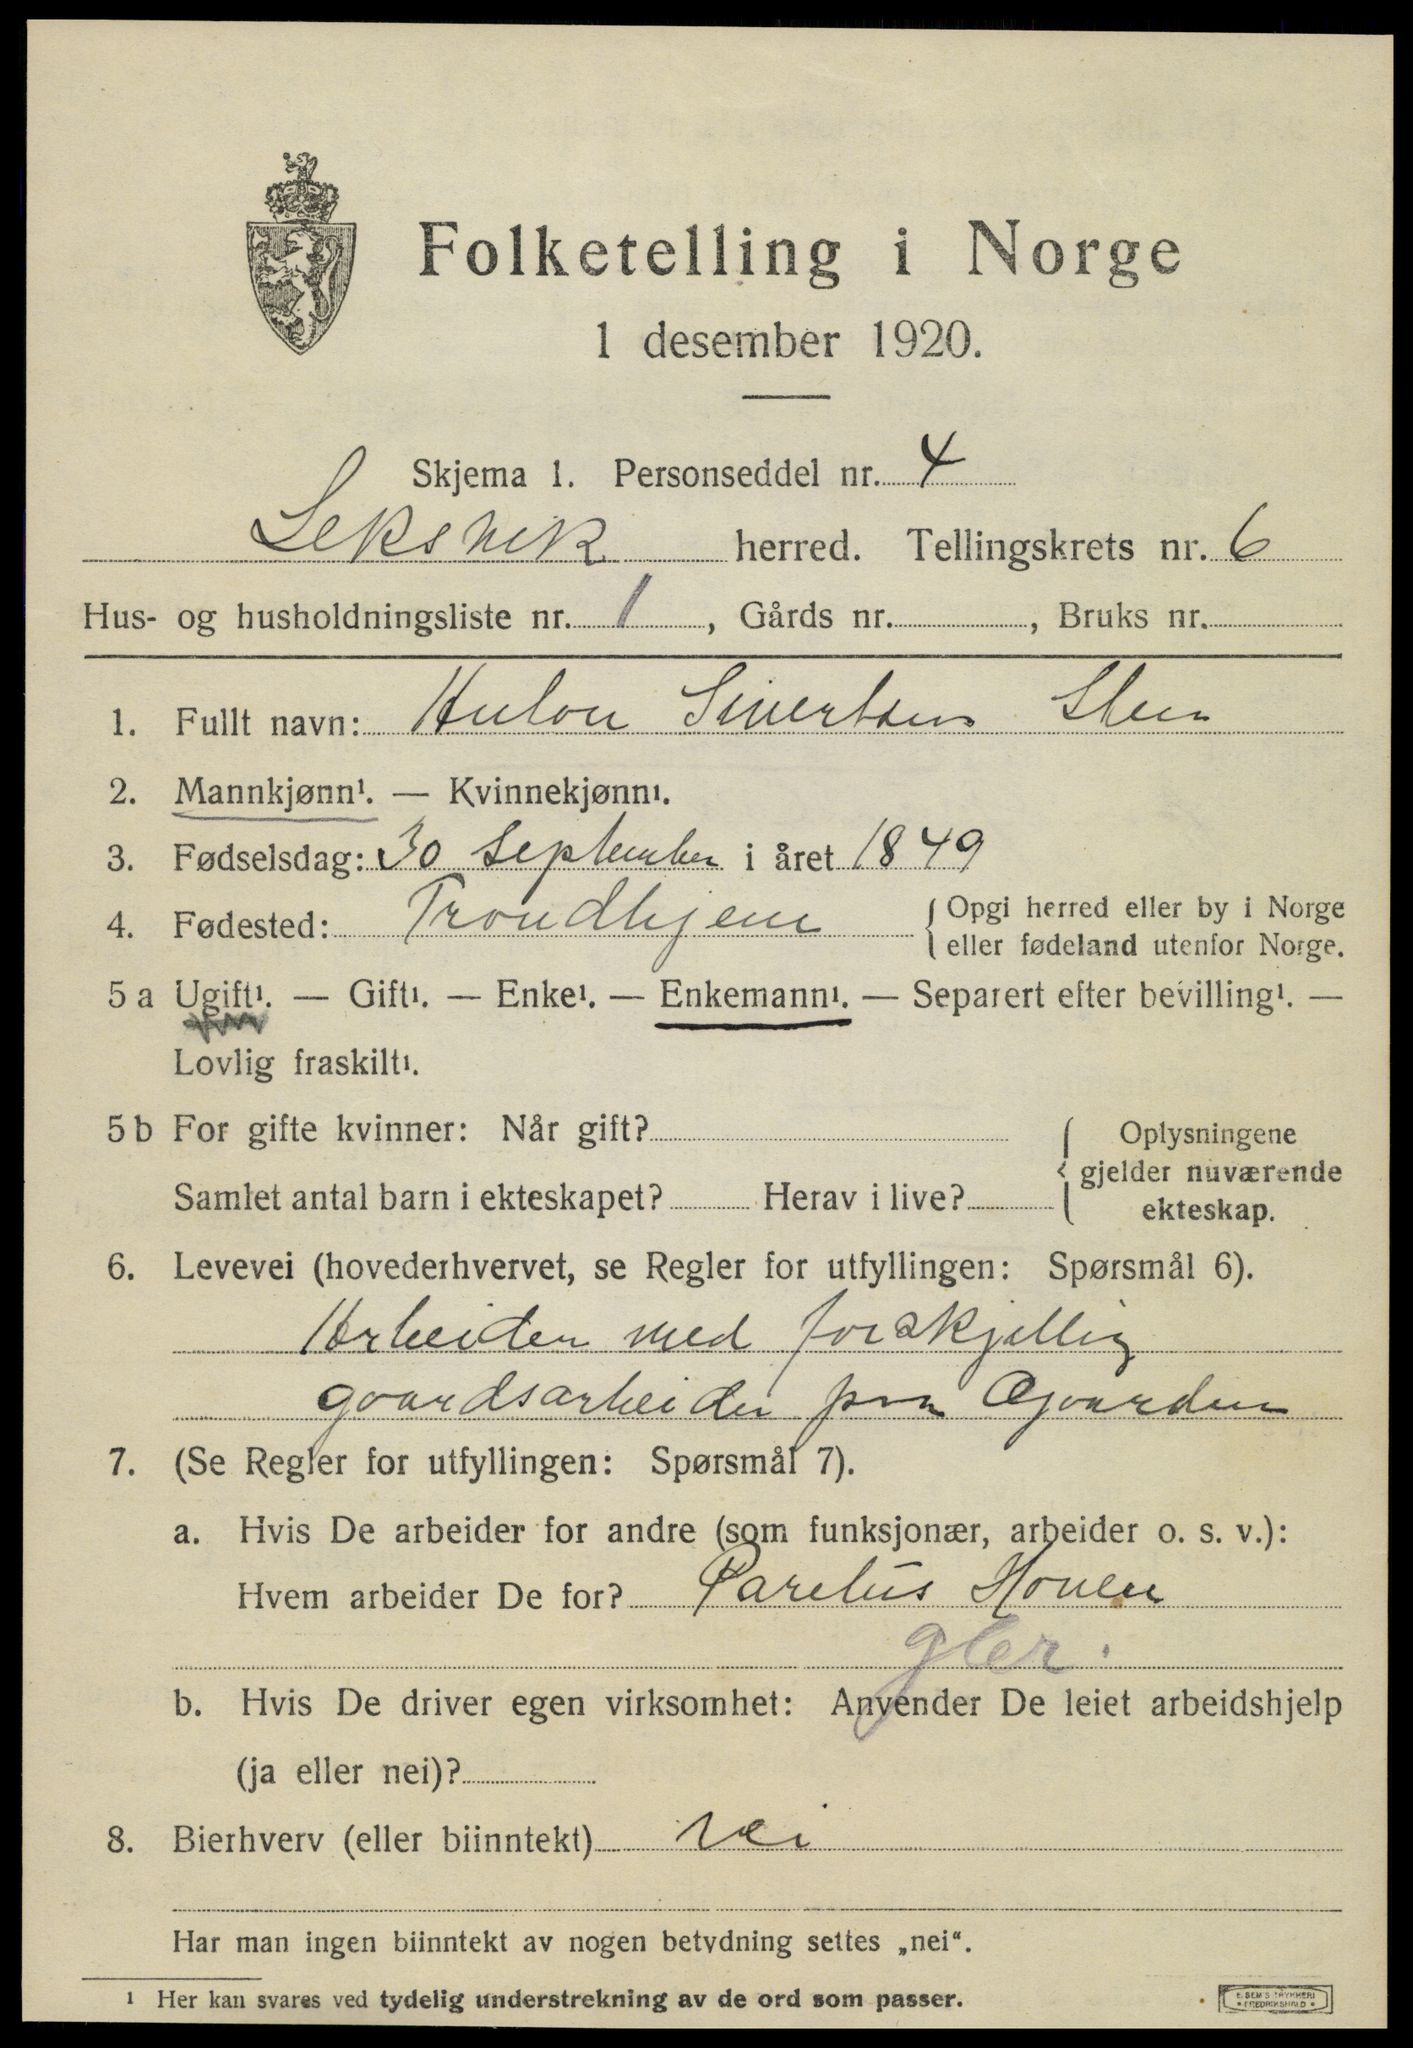 Folketelling i Norge
1 desember 1920.
Skjema 1. Personseddel nr. 4
Leksvik herred. Tellingskrets nr. 6
Hus- og husholdningsliste nr. 1, Gårds nr. , Bruks nr.
1. Fullt navn: Anton Sivertsen Steen
2. Mannkjønn¹. — Kvinnekjønn¹.
3. Fødselsdag: 30 September i året 1849
4. Fødested: Trondhjem {Opgi herred eller by i Norge
eller fødeland utenfor Norge.
5 a Ugift¹. — Gift¹. — Enke¹. — Enkemann¹. — Separert efter bevilling¹. —
Lovlig fraskilt¹.
5 b For gifte kvinner: Når gift? { Oplysningene
gjelder nuværende
Samlet antal barn i ekteskapet? Herav i live? ekteskap.
6. Levevei (hovederhvervet, se Regler for utfyllingen: Spørsmål 6).
Arbeider med forskjellig
gaardsarbeider paa Gaarden
7. (Se Regler for utfyllingen: Spørsmål 7).
a. Hvis De arbeider for andre (som funksjonær, arbeider o. s. v.):
Hvem arbeider De for? Parelius
b. Hvis De driver egen virksomhet: Anvender De leiet arbeidshjelp
(ja eller nei)?
8. Bierhverv (eller biinntekt) nei
Har man ingen biinntekt av nogen betydning settes „nei“.
¹ Her kan svares ved tydelig understrekning av de ord som passer.
E. SEM'S TRYKKERI
FREDRIKSHALD